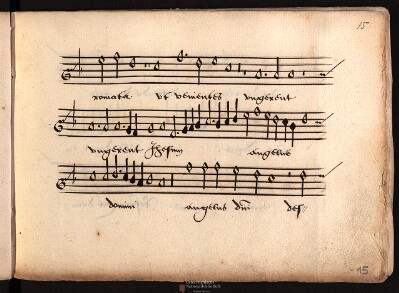 15
romata ut venientes ungerent
ungerent Jhesum angelus
domini angelus dni des
-15